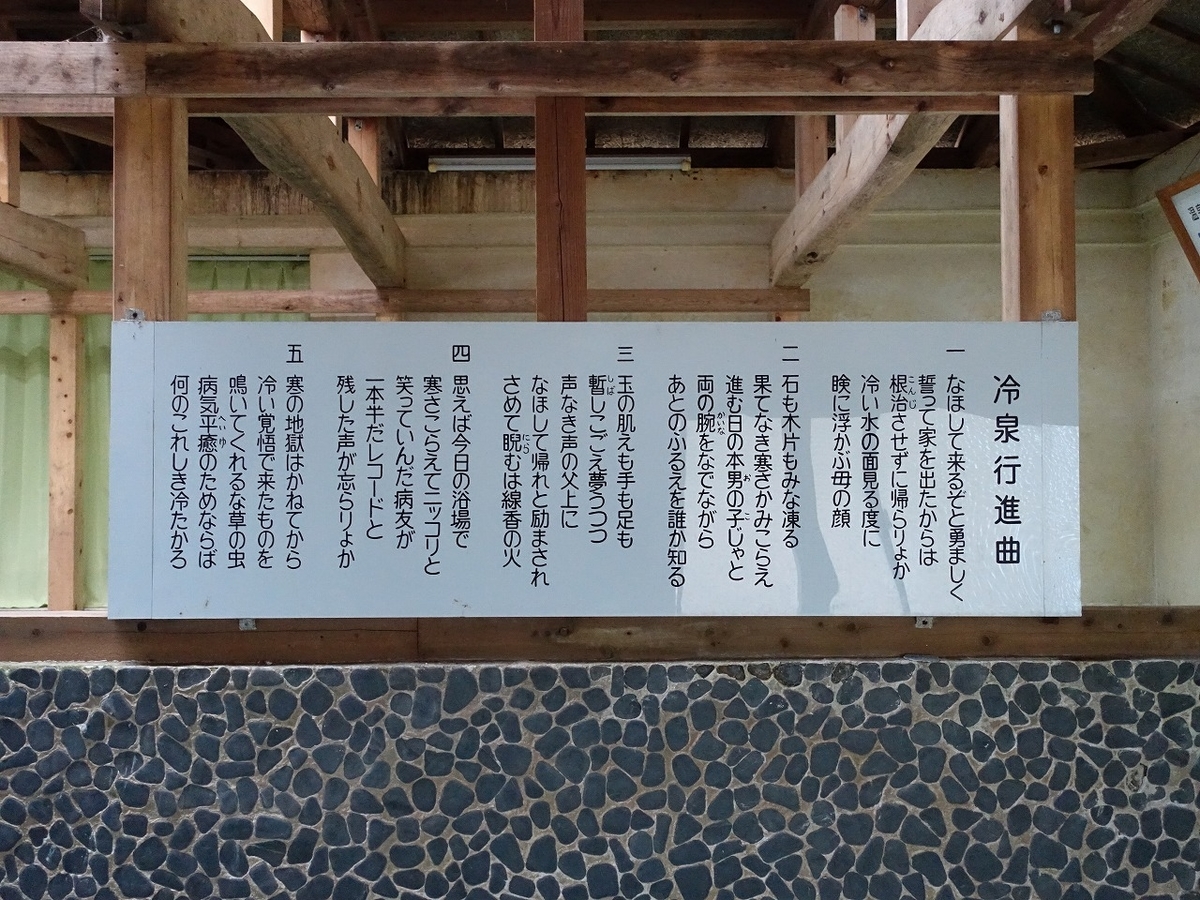 冷泉行進曲
一 なほして来るぞと勇ましく
誓って家を出たからは
根治させずに帰らりょか
こんじ
冷い水の面見る度に
瞼に浮かぶ母の顔
二 石も木片もみな凍る
果てなき寒さかみこらえ
進む日の本男の子じゃと
お こ
両の腕をなでながら
かいな
あとのふるえを誰か知る
三 玉の肌えも手も足も
暫しこごえ夢うつつ
しば
声なき声の父上に
なほして帰れと励まされ
さめて睨むは線香の火
にら
四 思えば今日の浴場で
寒さこらえてニッコリと
笑っていんだ病友が
一本半だレコードと
残した声が忘らりょか
五 寒の地獄はかねてから
冷い覚悟で来たものを
鳴いてくれるな草の虫
病気平癒のためならば
へいゆ
何のこれしき冷たかろ